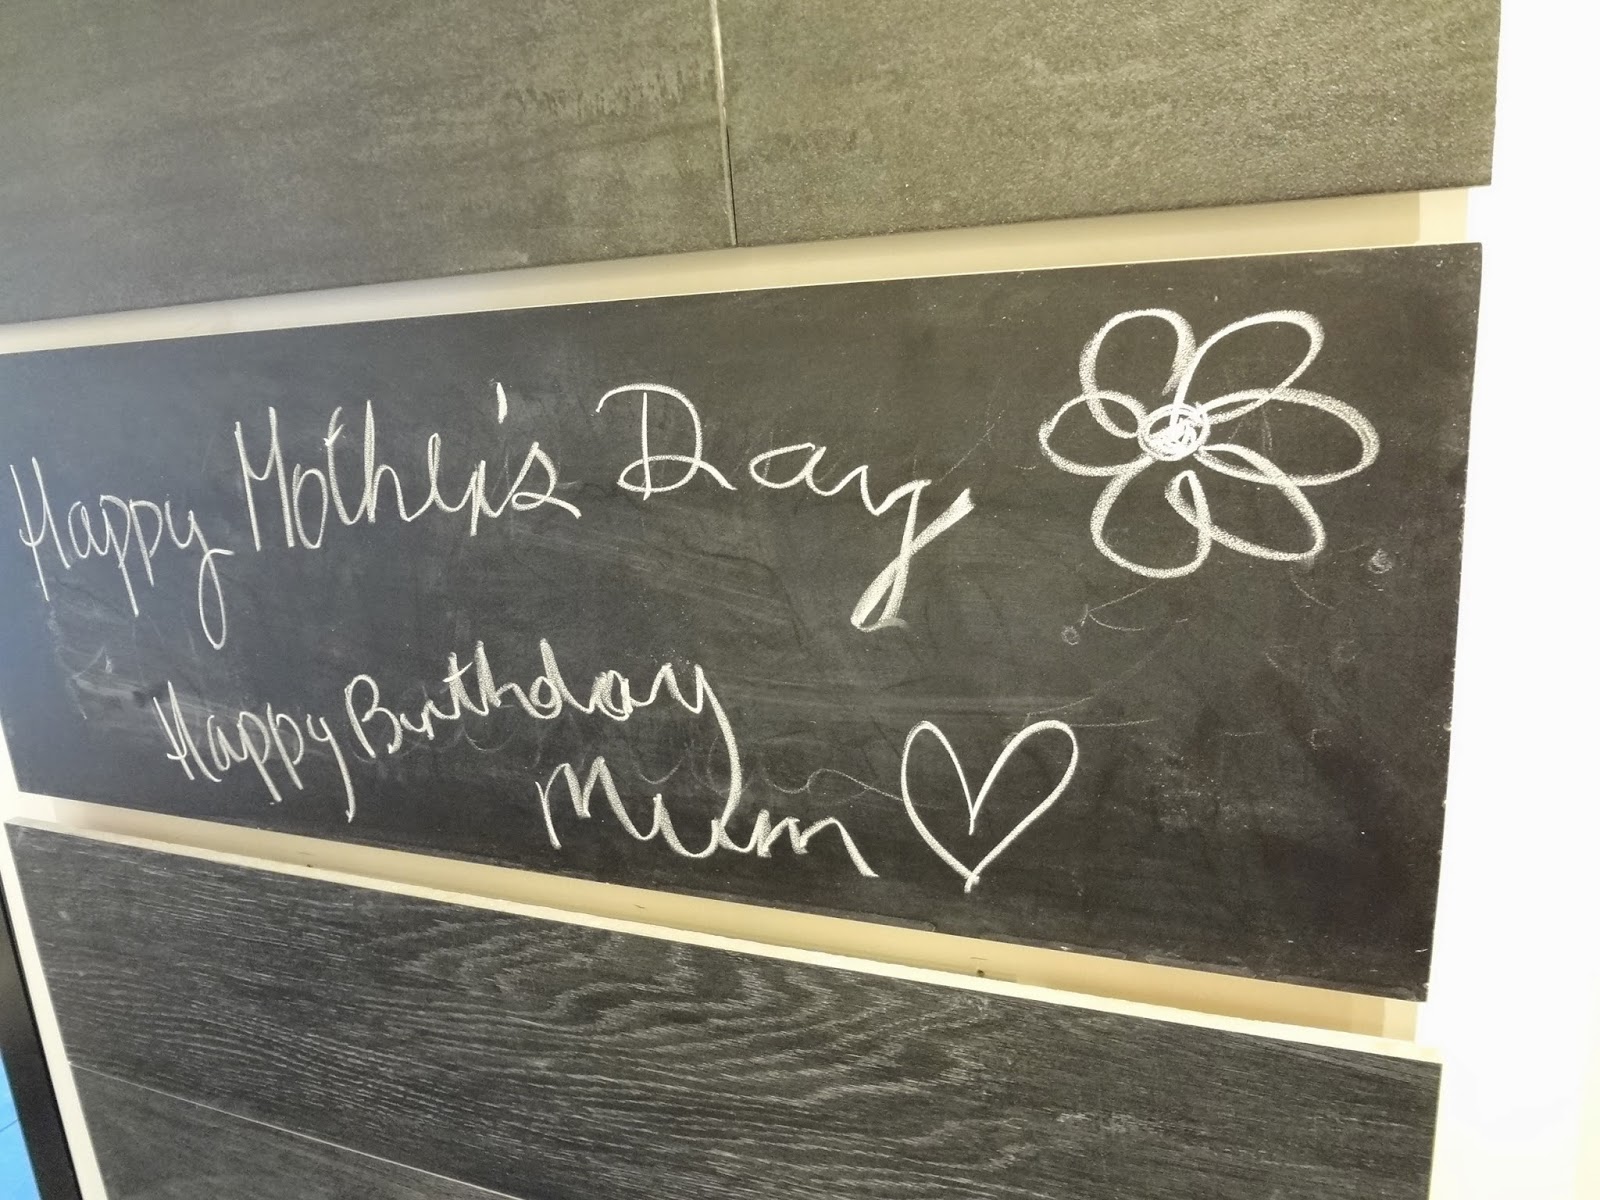 Happy Mother's Day,
Happy Birthday
Mum